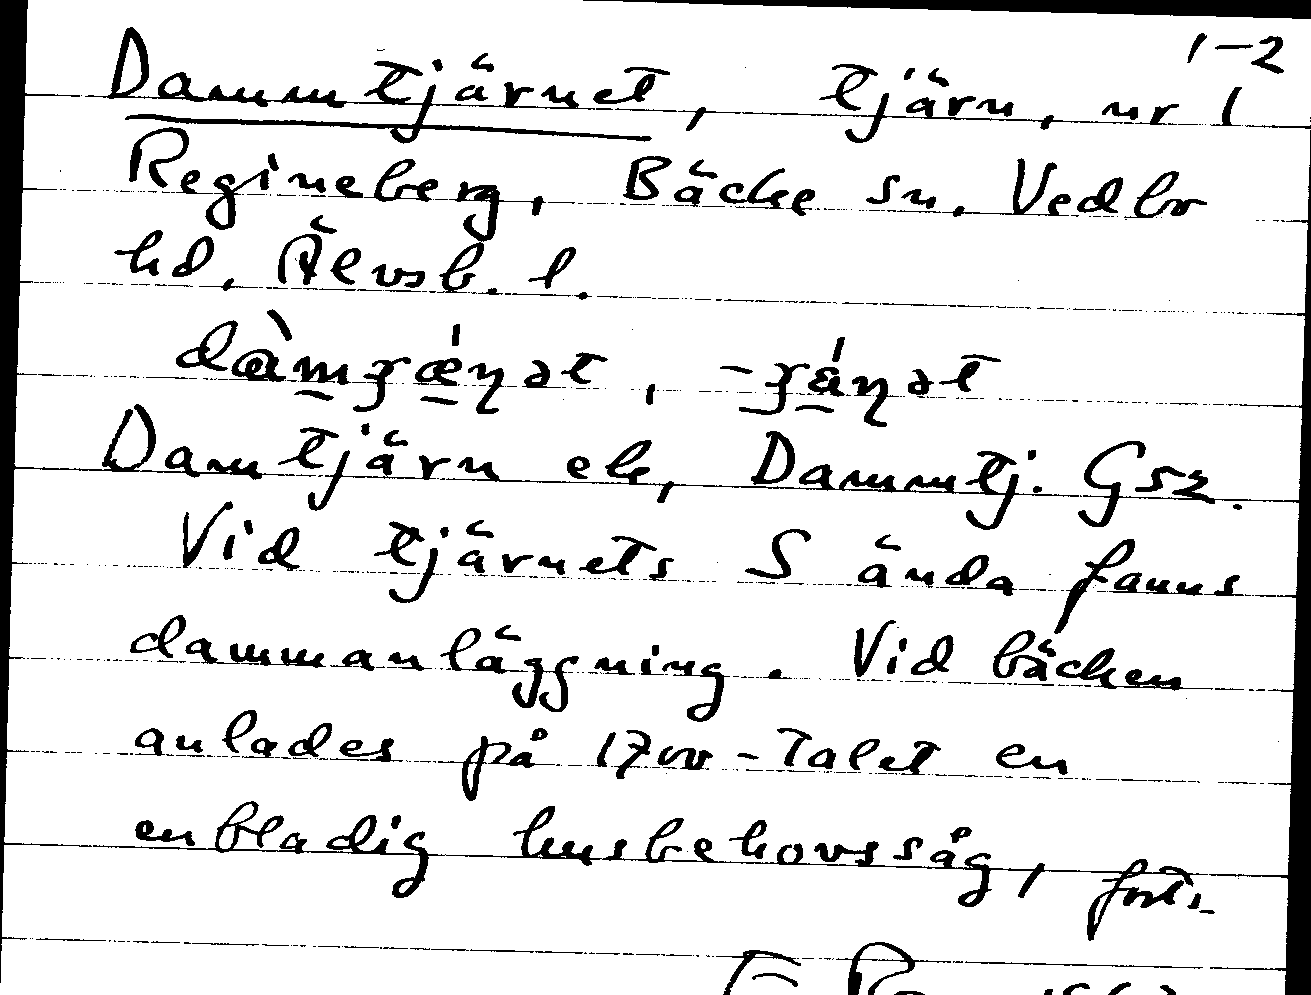 1-2
Dammtjärnet, tjärn, nr 1
Regineberg, Bäcke sn. Vedbo
hd, Älvsb. l.
Damtjärn ek, Dammtj. G52.
Vid tjärnets S ända fanns
dammanläggning. Vid bäcken
anlades på 1700-talet en
enbladig husbehovssåg, forts.